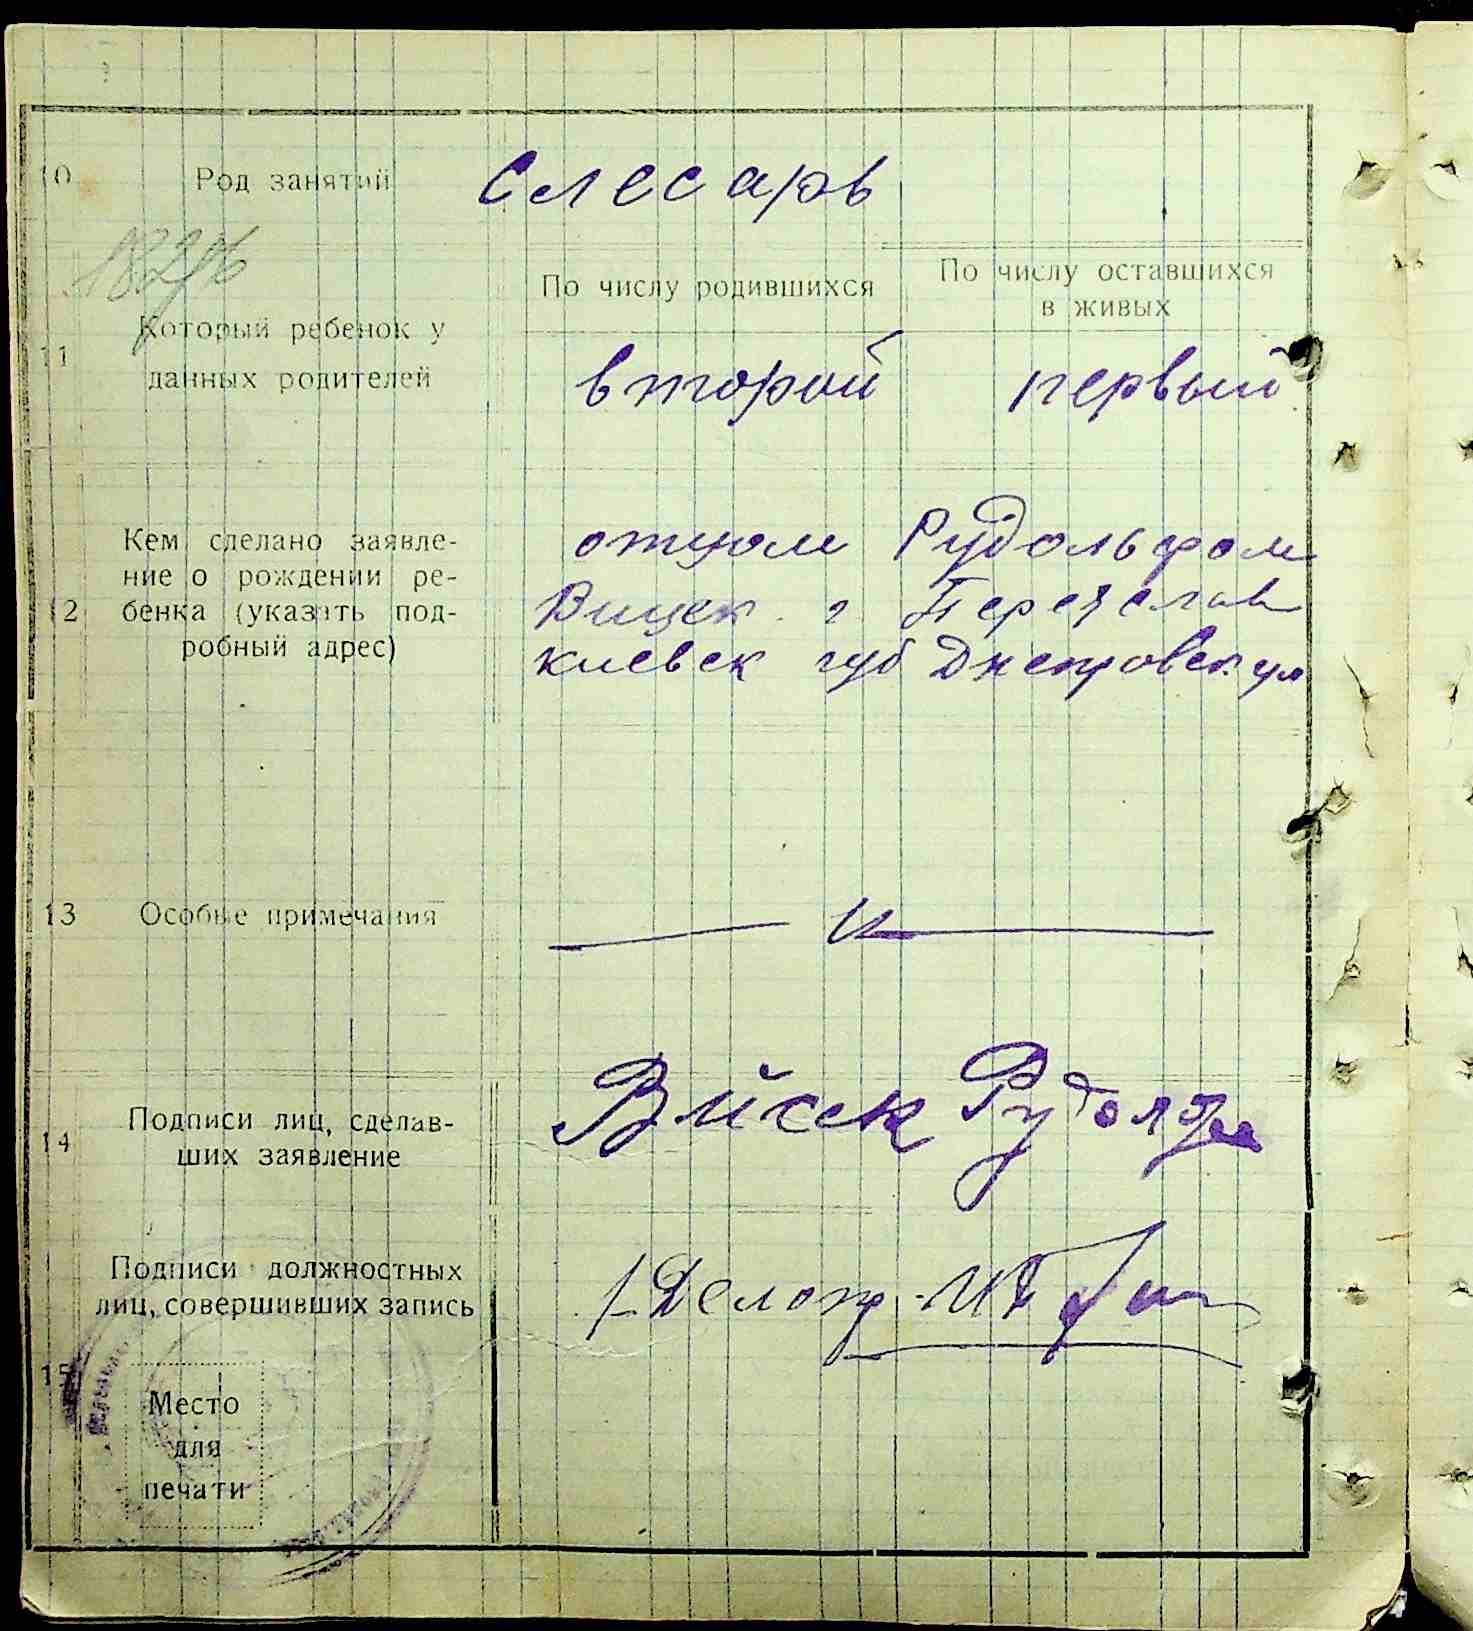 10 Род занятий слесарь
По числу родившихся По числу оставшихся
в живых
11 Который ребенок у
данных родителей второй первый
Кем сделано заявле- отцом Рудольфом
ние о рождении ре-
12 бенка (указать под- Вицек г Переяслав
робный адрес) киевск губ Днепровск ул
13 Особые примечания — и —
14 Подписи лиц, сделав- Вйсек Рудолф
ших заявление
Подписи должностных Делопр.
лиц, совершивших запись
15
Место
для
печати